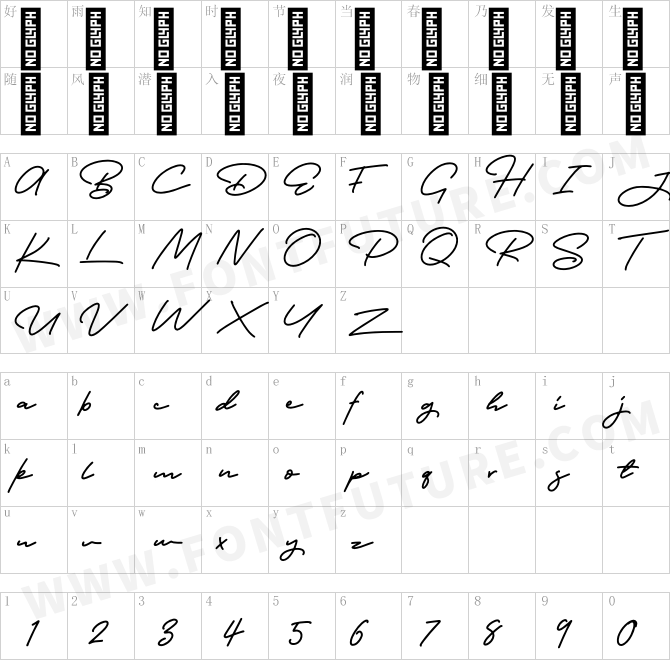 好 雨 知 时 节 当 春 乃 发 生
NO GLYPH NO GLYPH NO GLYPH NO GLYPH NO GLYPH NO GLYPH NO GLYPH NO GLYPH NO GLYPH NO GLYPH
随 风 潜 入 夜 润 物 细 无 声
NO GLYPH NO GLYPH NO GLYPH NO GLYPH NO GLYPH NO GLYPH NO GLYPH NO GLYPH NO GLYPH NO GLYPH
A B C D E F G H I J
A B C D E F G H I J
K L M N O P Q R S T
K L M N O P Q R S T
U V W X Y Z
U V W X Y Z
a b c d e f g h i j
a b c d e f g h i j
k l m n o p q r s t
k l m n o p q r s t
u v w x y z
u v w x y z
1 2 3 4 5 6 7 8 9 0
1 2 3 4 5 6 7 8 9 0
WWW.FONTFUTURE.COM
WWW.FONTFUTURE.COM